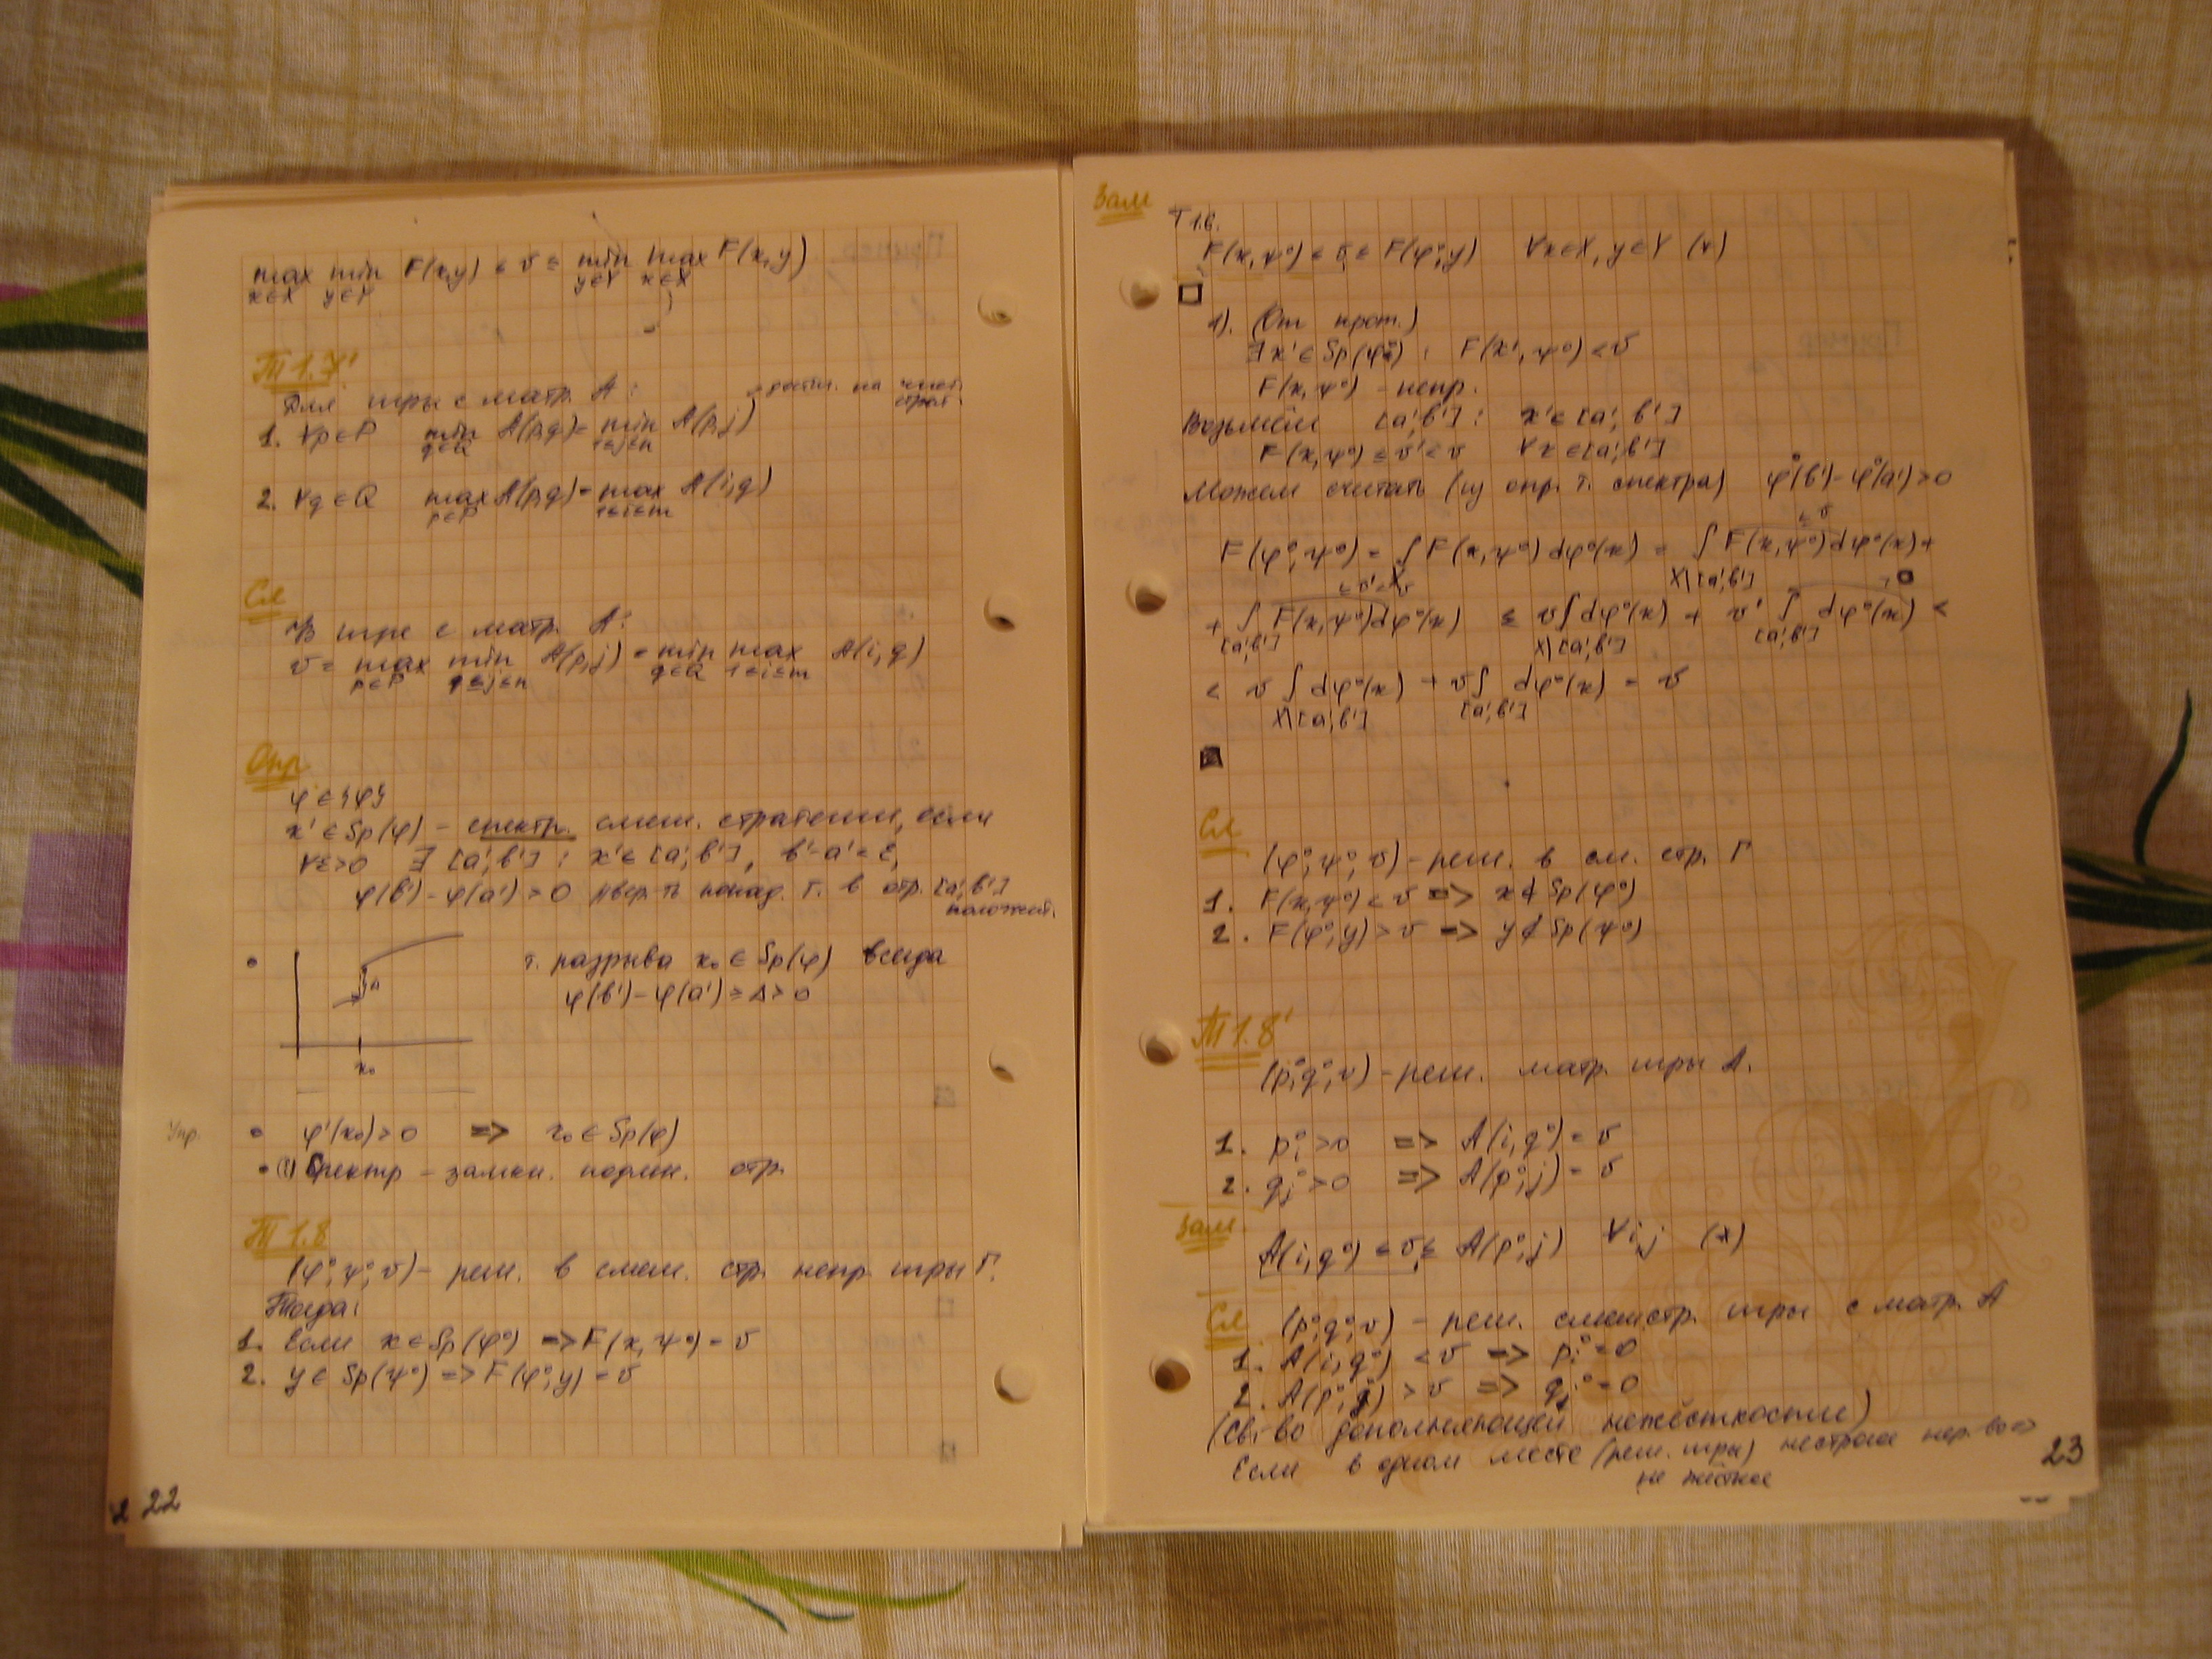 max min F(x,y) ≤ v ≤ min max F(x,y)
x∈X y∈Y y∈Y x∈X
Т 1.7'
Для игры с матр. A:
1. ∀p∈P min A(p,q) = min A(p,j)
q∈Q 1≤j≤n
2. ∀q∈Q max A(p,q) = max A(i,q)
p∈P 1≤i≤m
Сл
В игре с матр. A:
v = max min A(p,j) = min max A(i,q)
p∈P 1≤j≤n q∈Q 1≤i≤m
Опр
φ∈{φ}
x'∈Sp(φ) – спектр. смеш. стратегии, если
∀ε>0 ∃ [a',b']: x'∈[a',b'], b'-a'=ε,
φ(b')-φ(a')>0 //вер-ть попад. т. в отр. [a',b']
положит.
т. разрыва x₀∈Sp(φ) всегда
φ(b')-φ(a') ≥ Δ > 0
Δ
x₀
Упр. • φ'(x₀)>0 => x₀∈Sp(φ)
• (!) Спектр – замкн. подмн. отр.
Т 1.8
(φ°,ψ°,v) – реш. в смеш. стр. непр. игры Г.
Тогда:
1. Если x∈Sp(φ°) => F(x,ψ°) = v
2. y∈Sp(ψ°) => F(φ°,y) = v
22
Зам
Т 1.6.
F(x,ψ°) ≤ v ≤ F(φ°,y) ∀x∈X, y∈Y (*)
1). (От прот.)
∃x'∈Sp(φ°): F(x',ψ°)<v
F(x,ψ°) – непр.
Возьмём [a',b']: x'∈[a',b']
F(x,ψ°) ≤ v' < v ∀x∈[a',b']
Можем считать (из опр. т. спектра) φ°(b')-φ°(a')>0
≤ v
F(φ°,ψ°) = ∫ F(x,ψ°)dφ°(x) = ∫ F(x,ψ°)dφ°(x) +
X X\[a',b']
≤ v' < v >0
+ ∫ F(x,ψ°)dφ°(x) ≤ v∫dφ°(x) + v' ∫ dφ°(x) <
[a',b'] X\[a',b'] [a',b']
< v ∫ dφ°(x) + v∫ dφ°(x) = v
X\[a',b'] [a',b']
Сл
(φ°,ψ°,v) – реш. в см. стр. Г
1. F(x,ψ°) < v => x∉Sp(φ°)
2. F(φ°,y) > v => y∉Sp(ψ°)
Т 1.8'
(p°,q°,v) – реш. матр. игры A.
1. pᵢ°>0 => A(i,q°) = v
2. qⱼ°>0 => A(p°,j) = v
Зам.
A(i,q°) ≤ v ≤ A(p°,j) ∀i,j (*)
Сл (p°,q°,v) – реш. смеш. стр. игры с матр. A
1. A(i,q°) < v => pᵢ° = 0
2. A(p°,j) > v => qⱼ° = 0
(Св-во дополняющей нежёсткости)
Если в одном месте (реш. игры) нестрогое нер-во =>
не жёсткое
23